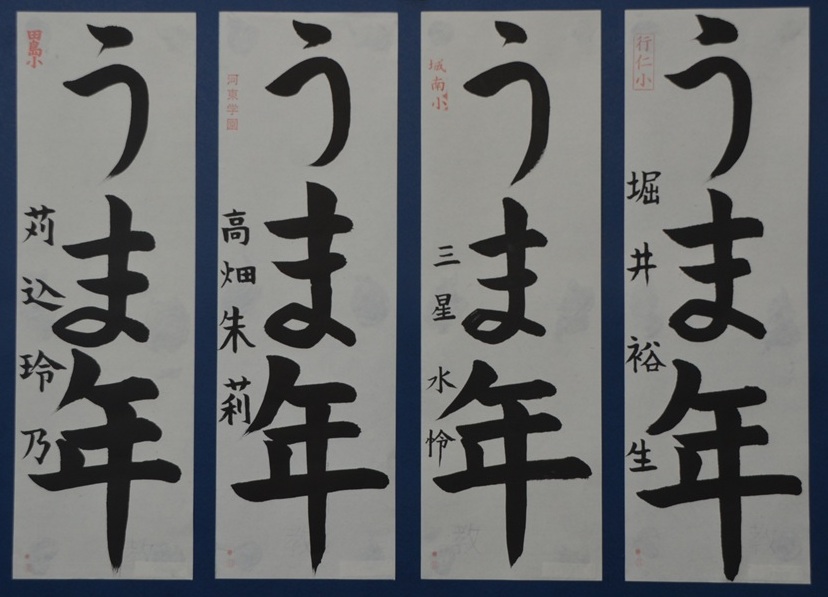 うま年
行仁小
堀井裕生
うま年
城南小
三星水怜
うま年
河東学園
高畑朱莉
うま年
田島小
苅込玲乃